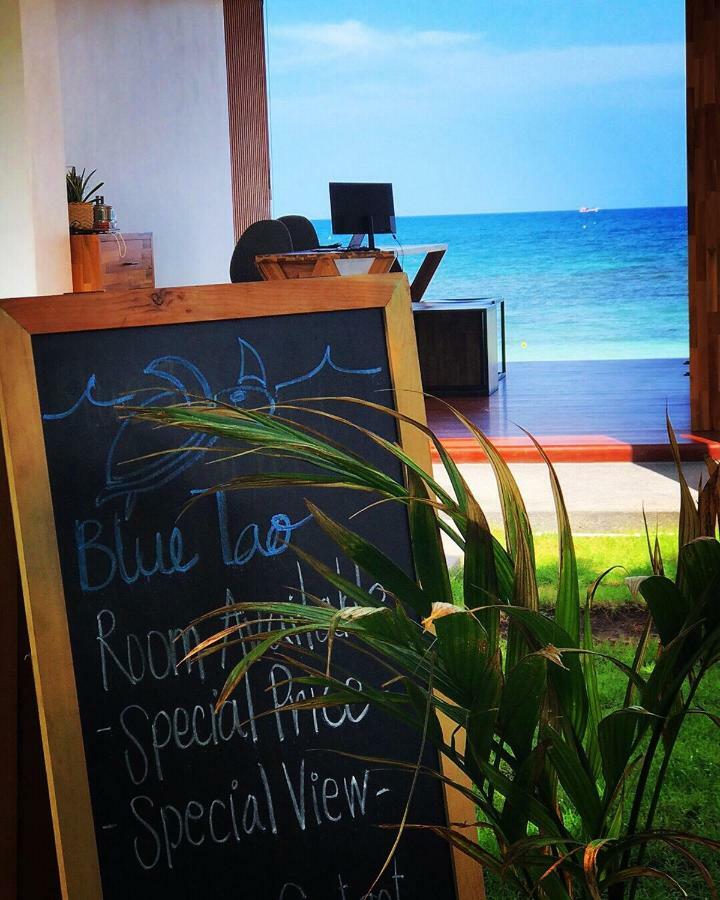 Blue Tao
Room Available
-Special Price
-Special View-
Contact